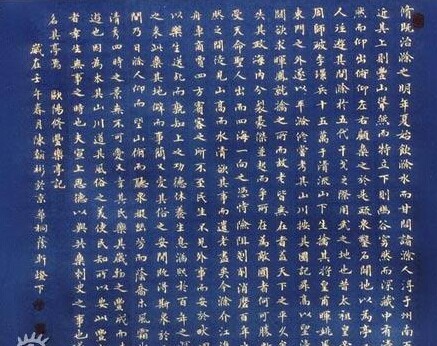 脩既治滁之明年夏始飲滁水而甘問諸滁人得于州南百
近其上則豐山聳然而特立下則幽谷窈然而深藏中有清
然而仰出俯仰左右顧而樂之於是疏泉鑿石闢地以為亭
人往遊其間滁於五代干戈之際用武之地也昔太祖皇帝
周師破李璟兵十五萬於清流山下生擒其將皇甫暉姚鳳
東門之外遂以平滁脩嘗考其山川按其圖記昇高以望清
間欲求暉鳳就擒之所而故老皆無在者蓋天下之平久矣
失其政海內分裂豪傑並起而爭所在為敵國者何可勝數
受天命聖人出而四海一向之憑恃險阻剗削消磨百年
然之間徒見山高而水清欲問其事而遺老盡矣今滁介江淮
舟車商賈四方賓客之所不至民生不見外事而安於畎
以樂生送死而孰知上之功德休養生息涵煦於百年之深
之來此樂其地僻而事簡又愛其俗之安閒既得斯泉於
間乃日與滁人仰而望山俯而聽泉掇幽芳而蔭喬木風霜
清秀四時之景無不可愛又幸其民樂其歲物之豐成而
遊也因為本其山川道其風俗之美使民知所以安此豐
者幸生無事之時也夫宣上恩德以與民共樂刺史之事也
名其亭焉 歐陽脩豐樂亭記
歲在壬午春月陳新於京華桐蔭軒燈下